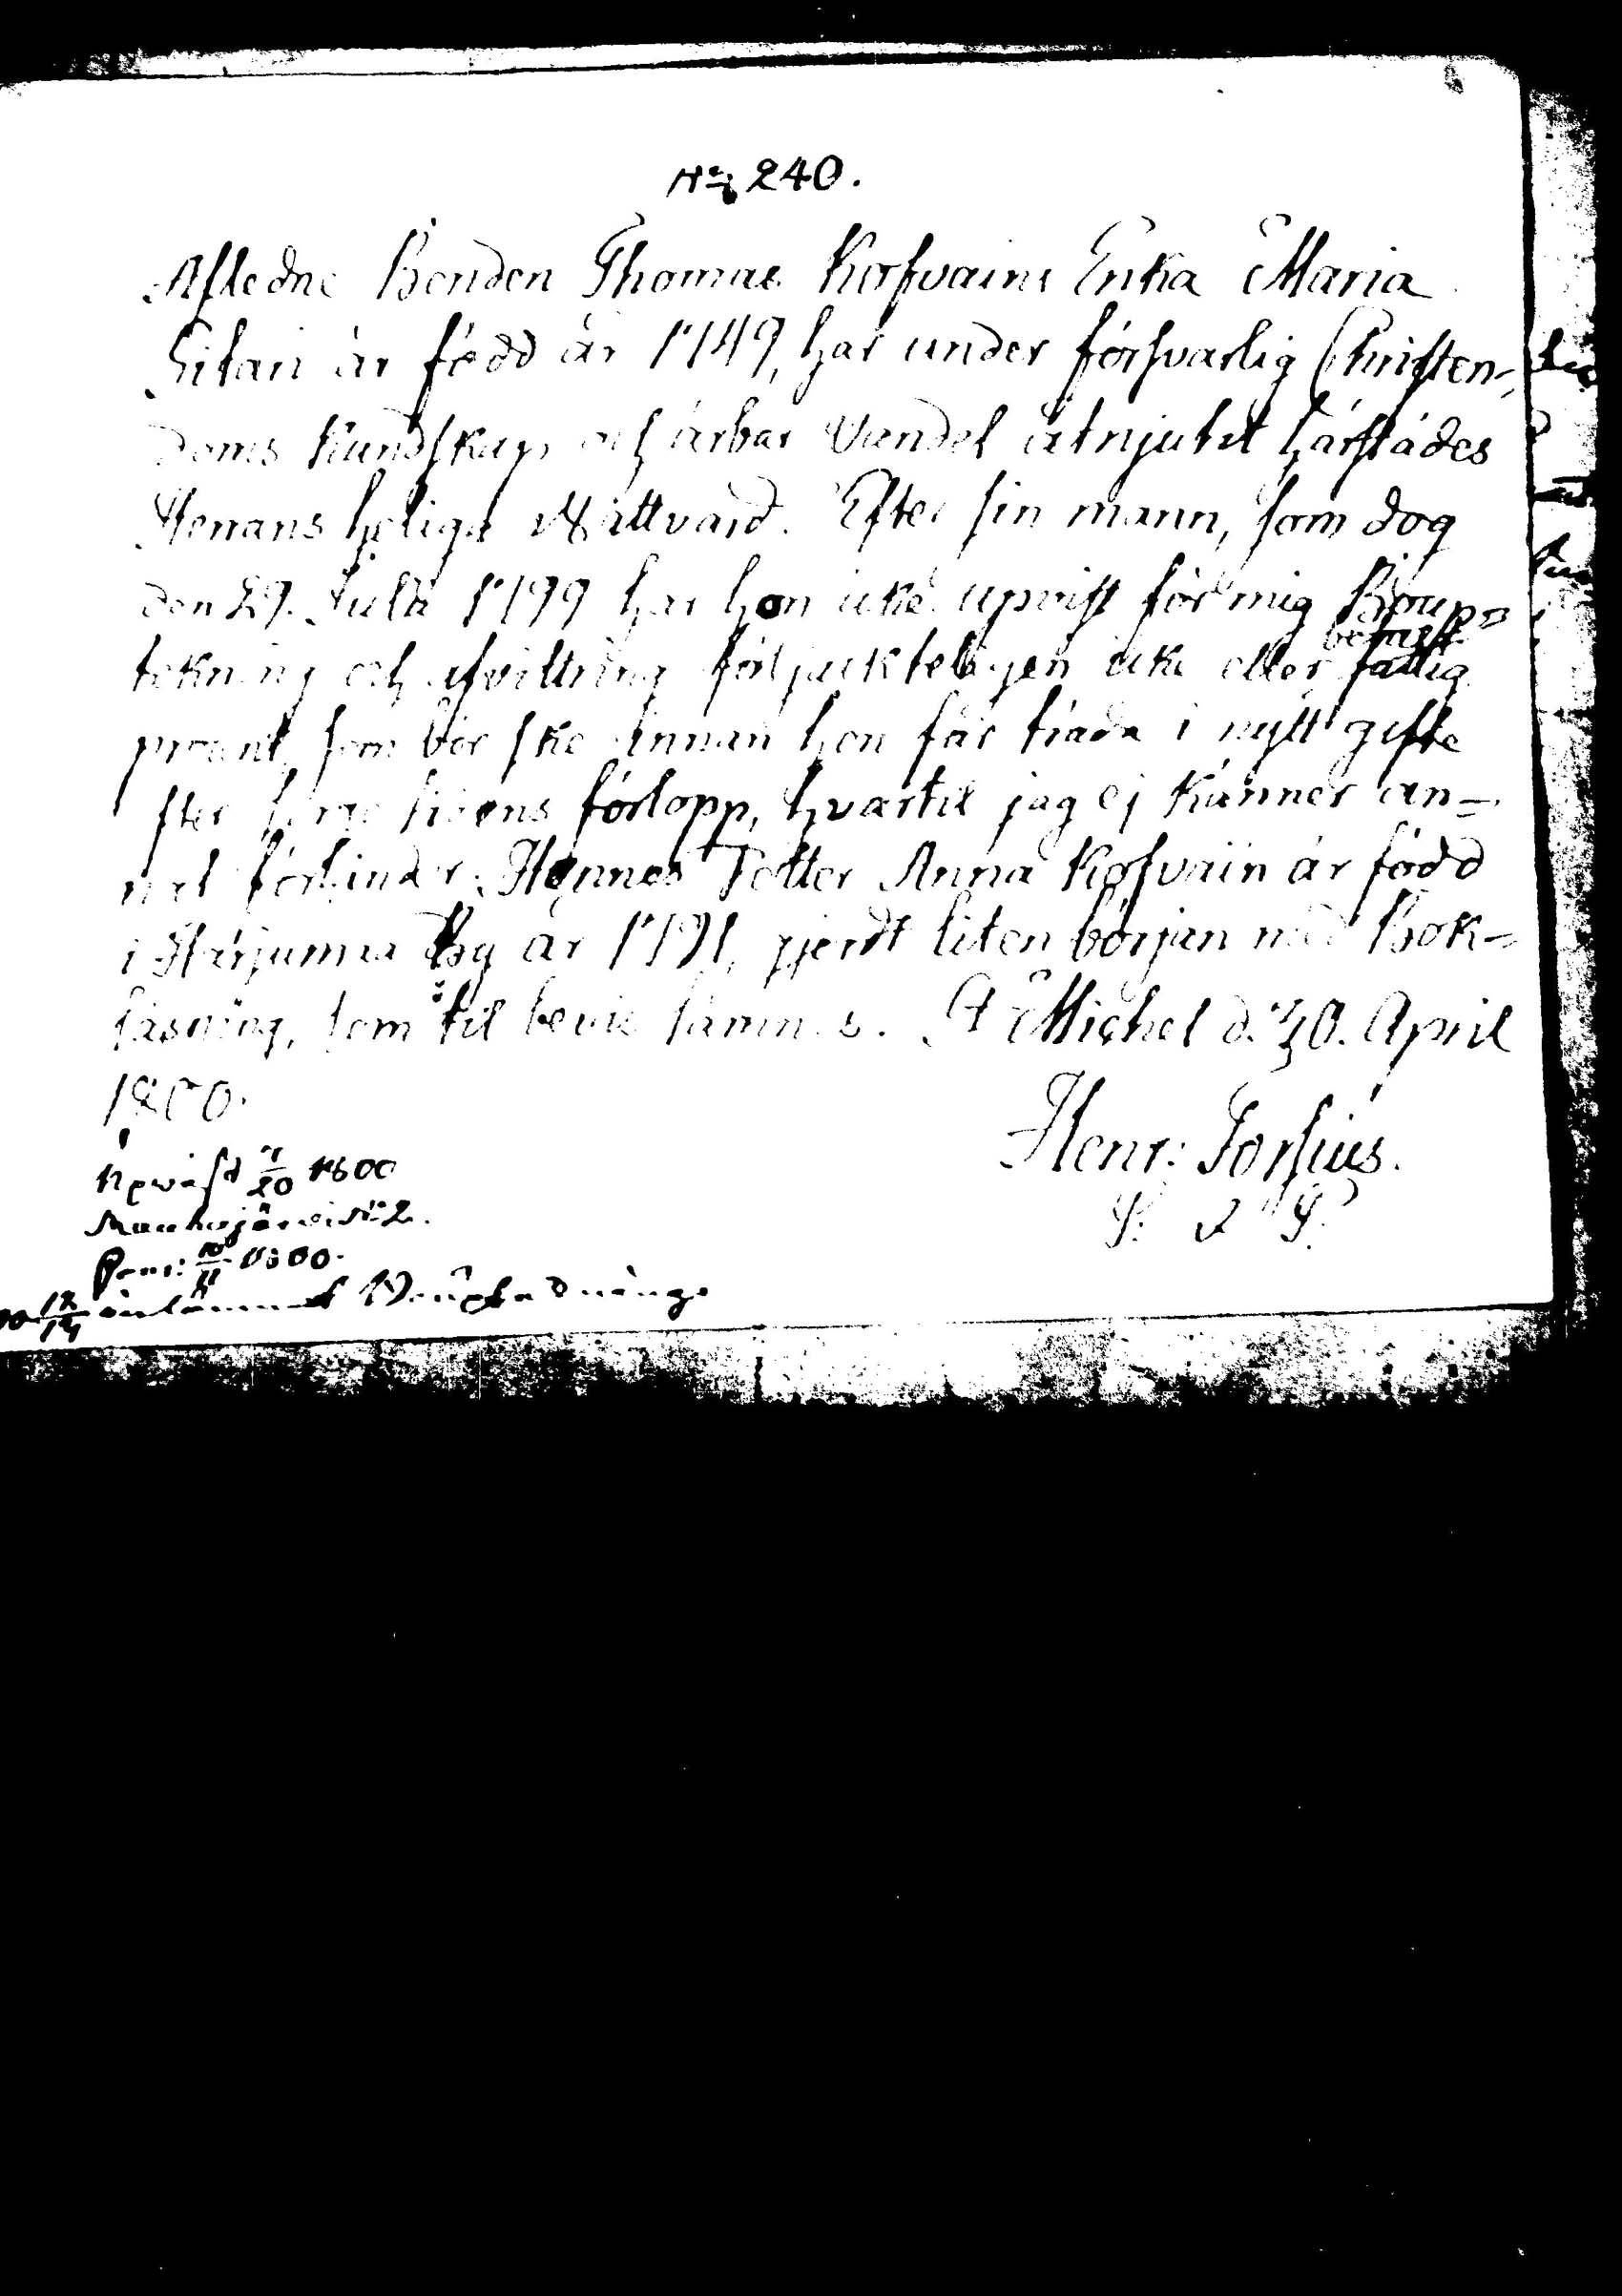 No 240.
Afledne Bonden Thomas Korfvains Enka Maria
är född år 1749, har under försvarlig Christen-
doms Kundskap och ärbar Vandel åtnjutit härstädes
Herrans heliga Nattvard. Efter sin mann, som dog
den 29. Julii 1799 har hon icke upvist för mig Boup-
tekning och afvittring icke eller fattig
procent, som bör ske innan hon får träda i nytt gifte
efter sorge tidens förlopp, hvartil jag ej känner an-
nat förhinder. Hennes Dotter Anna Korfvain är född
i Harjumaa By år 1791, gjordt liten början med Bok-
läsning, som til bevis lämnas. St Michel d. 30. April
1800.
Henr: Forsius.
Upvist 4/20 1800
No 2.
1800.
inlämnat